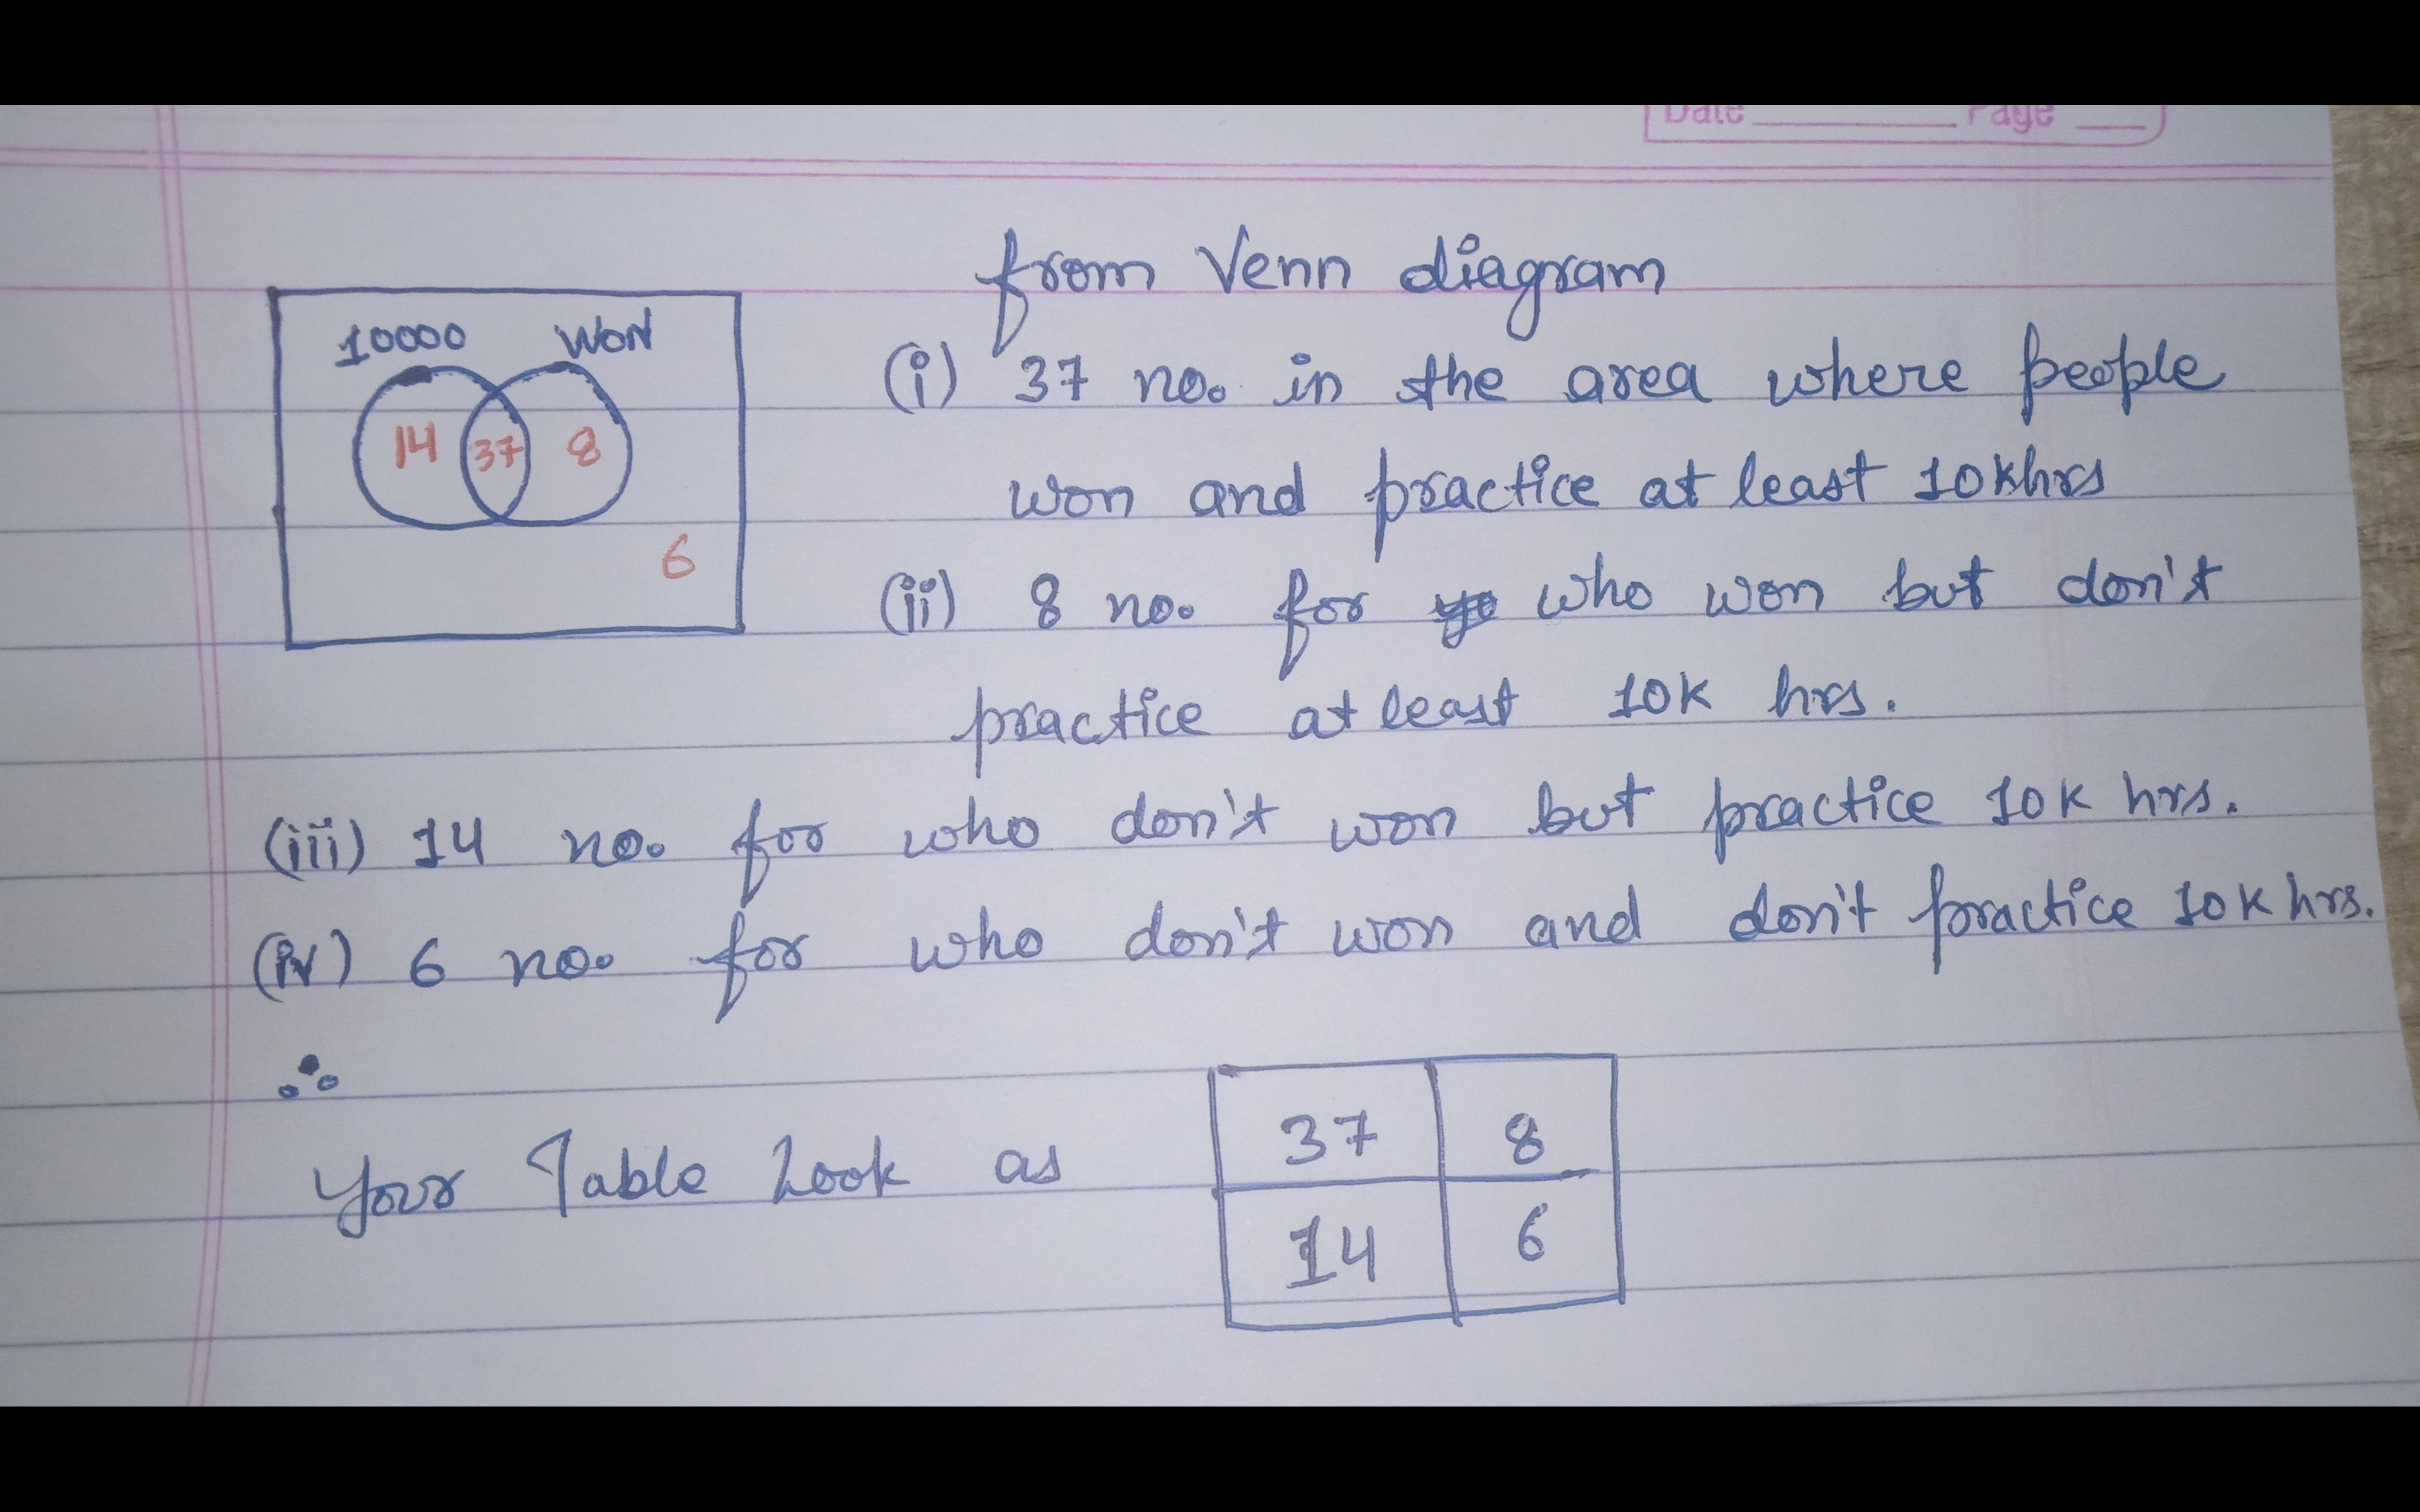 Date Page
from Venn diagram
10000 WON
(i) 37 no. in the area where people
14 37 8
won and practice at least 10khrs
6
(ii) 8 no. for who won but don't
practice at least 10K hrs.
(iii) 14 no. for who don't won but practice 10K hrs.
(iv) 6 no. for who don't won and don't practice 10K hrs.
∴
37 8
Your Table Look as
14 6